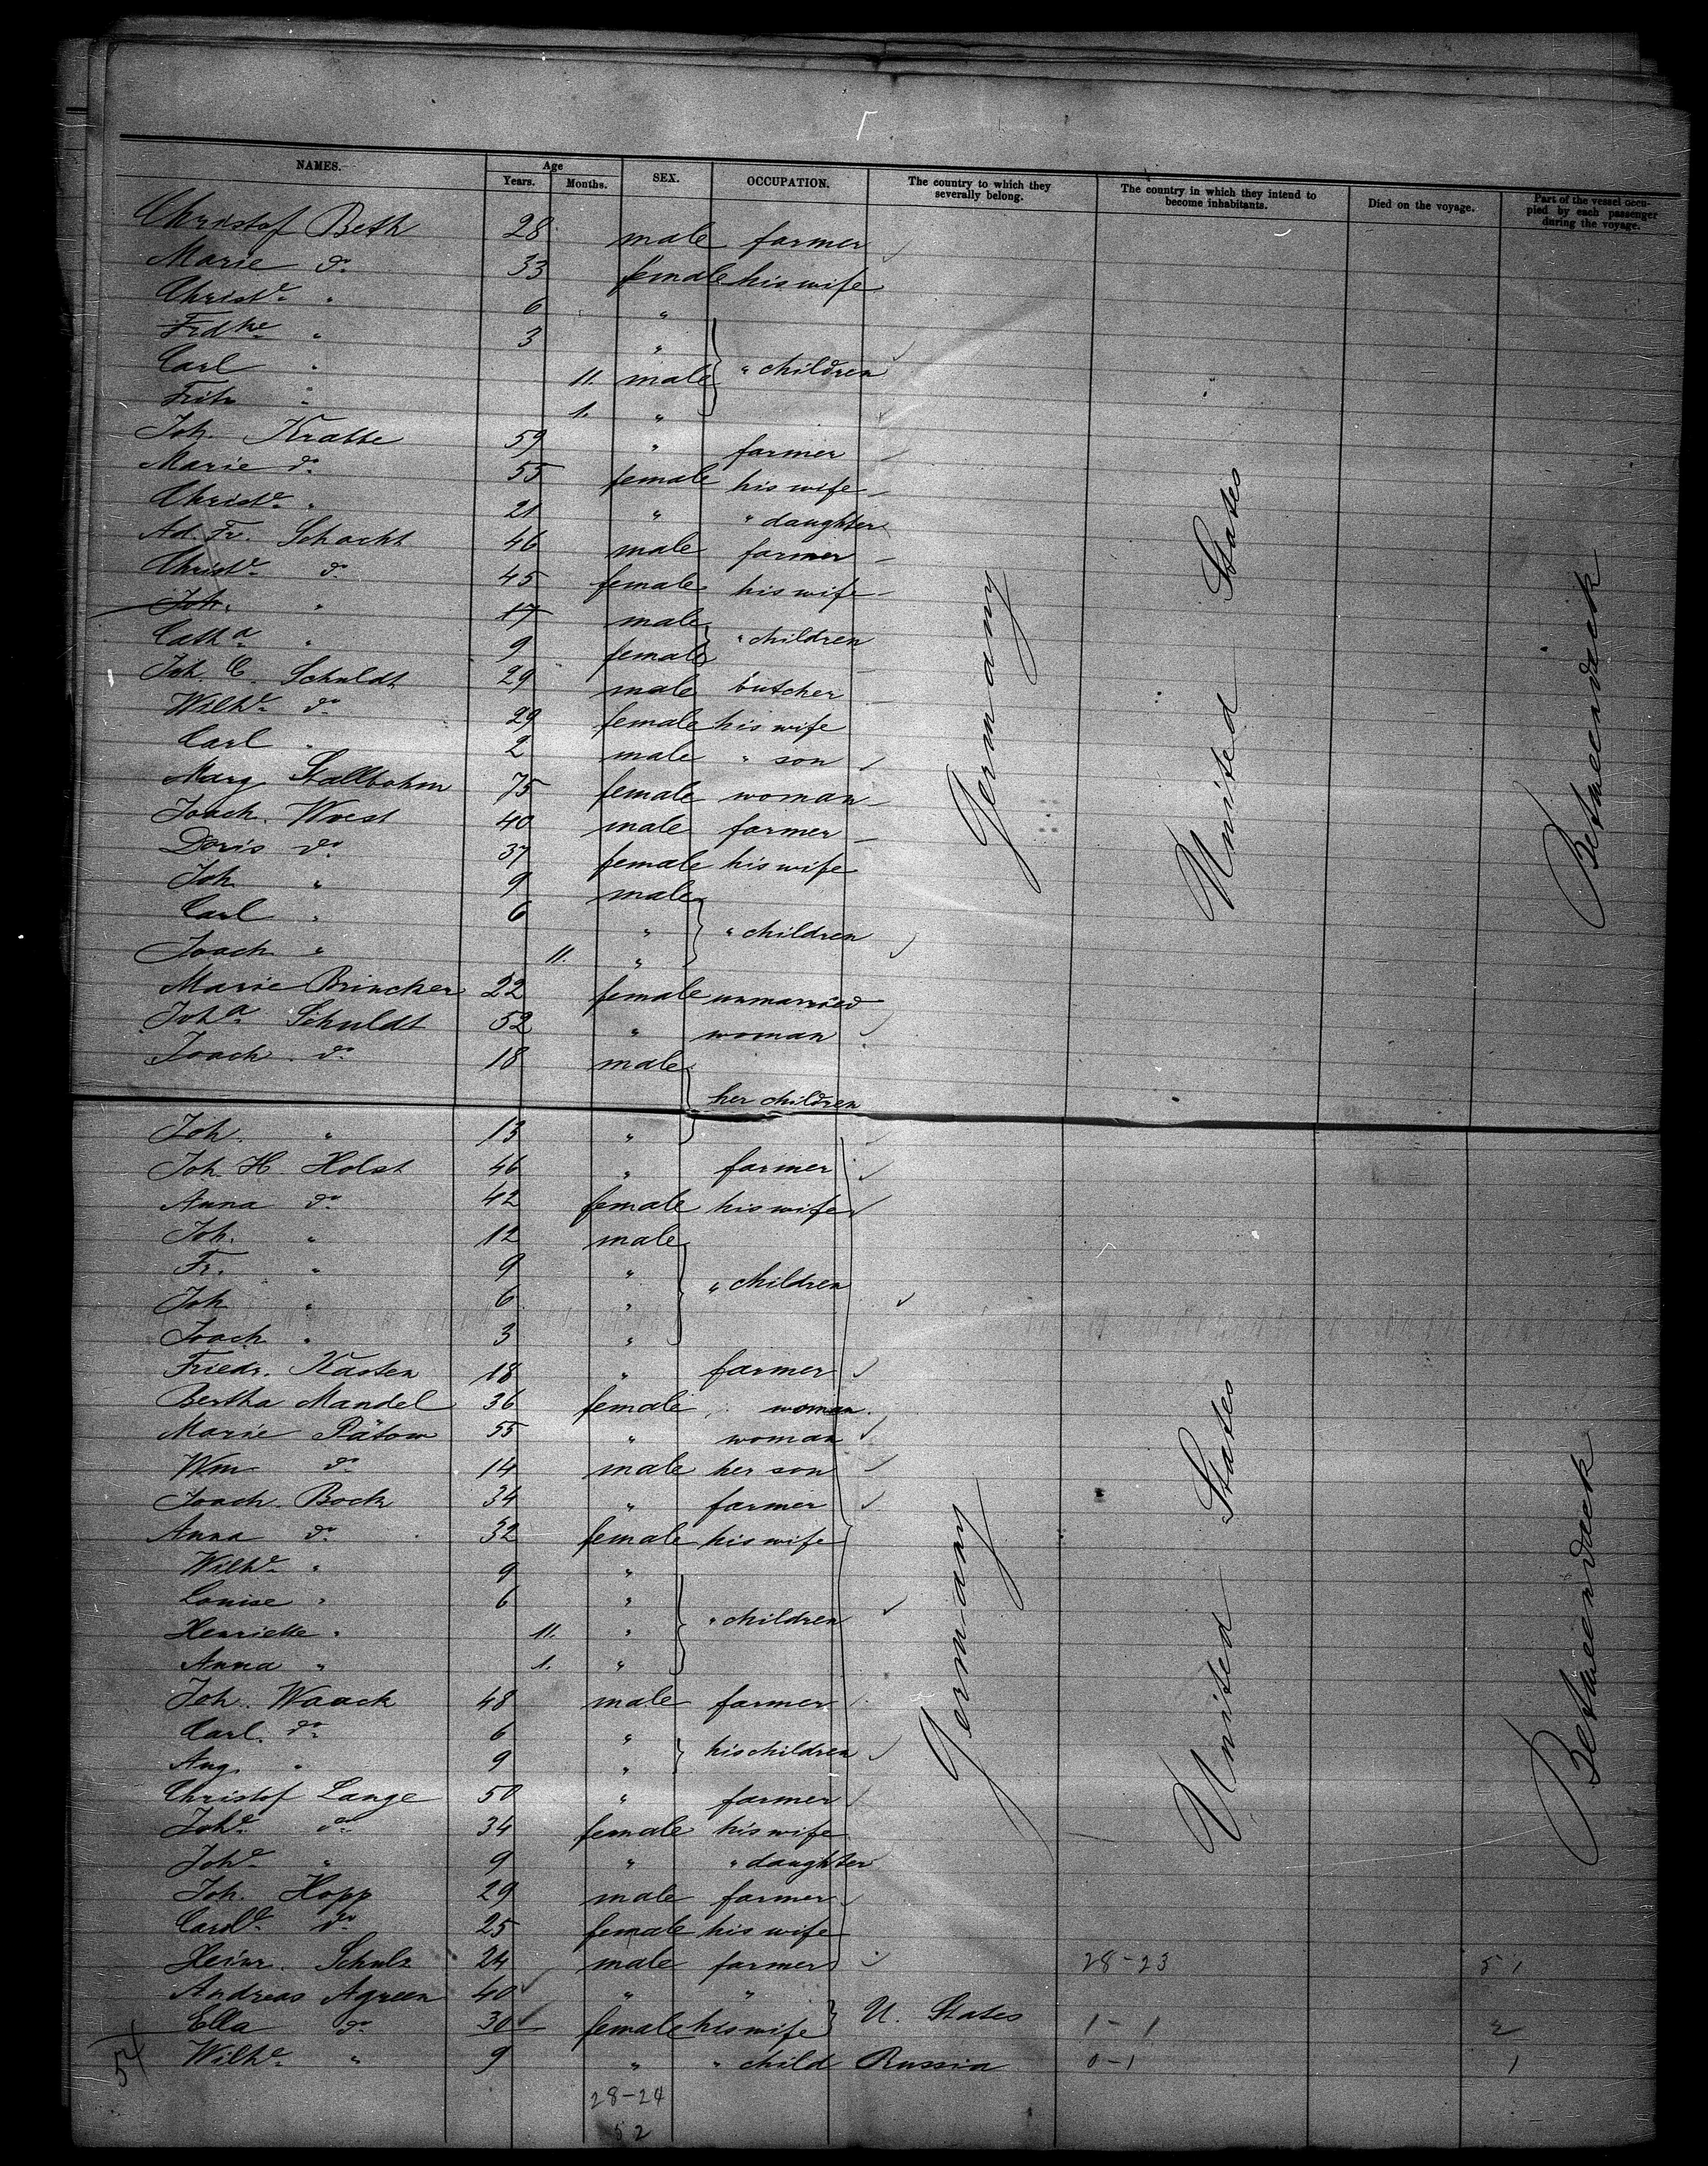 NAMES. Age Years. Months. SEX. OCCUPATION. The country to which they severally belong. The country in which they intend to become inhabitants. Died on the voyage. Part of the vessel occupied by each passenger during the voyage.
Christof Beth 28 male farmer
Marie do 33 female his wife
Christe " 6 "
Frdke " 3 "
Carl " 11. male " children
Fritz " 1. "
Joh. Kratte 59 " farmer
Marie do 55 female his wife
Christe " 21 " " daughter
Ad. Fr. Schacht 46 male farmer
Christe do 45 female his wife
Joh. " 17 male
Catha " 9 female " children
Joh. C. Schuldt 29 male butcher
Wilhe do 29 female his wife
Carl " 2 male " son
Marg. Stallbohm 75 female woman
Joach. Wvest 40 male farmer
Doris do 37 female his wife
Joh. " 9 male
Carl " 6 " " children
Joach " 11. "
Marie Brincker 22 female unmarried
Joha Schuldt 52 " woman
Joach. do 18 male
her children
Joh. " 13 "
Joh. H. Holst 46 " farmer
Anna do 42 female his wife
Joh. " 12 male
Fr. " 9 " " children
Joh " 6 "
Joach " 3 "
Friedr. Kasten 18 " farmer
Bertha Mandel 36 female woman
Marie Pätow 55 " woman
Wm do 14 male her son
Joach. Bock 34 " farmer
Anna do 32 female his wife
Wilhe " 9 "
Louise " 6 " " children
Henriette " 11. "
Anna " 1. "
Joh. Waack 48 male farmer
Carl. do 6 " his children
Aug. " 9 "
Christof Lange 50 " farmer
Johe do 34 female his wife
Johe " 9 " " daughter
Joh. Hopp 29 male farmer
Carole do 25 female his wife
Heinr. Schulz 24 male farmer 28-23 51
Andreas Agreen 40 " "
Ella do 30 female his wife U. States 1-1 2
Wilhe " 9 " " child Russia 0-1 1
54
28-24
52
Germany
United States
Betweendeck
Germany
United States
Betweendeck